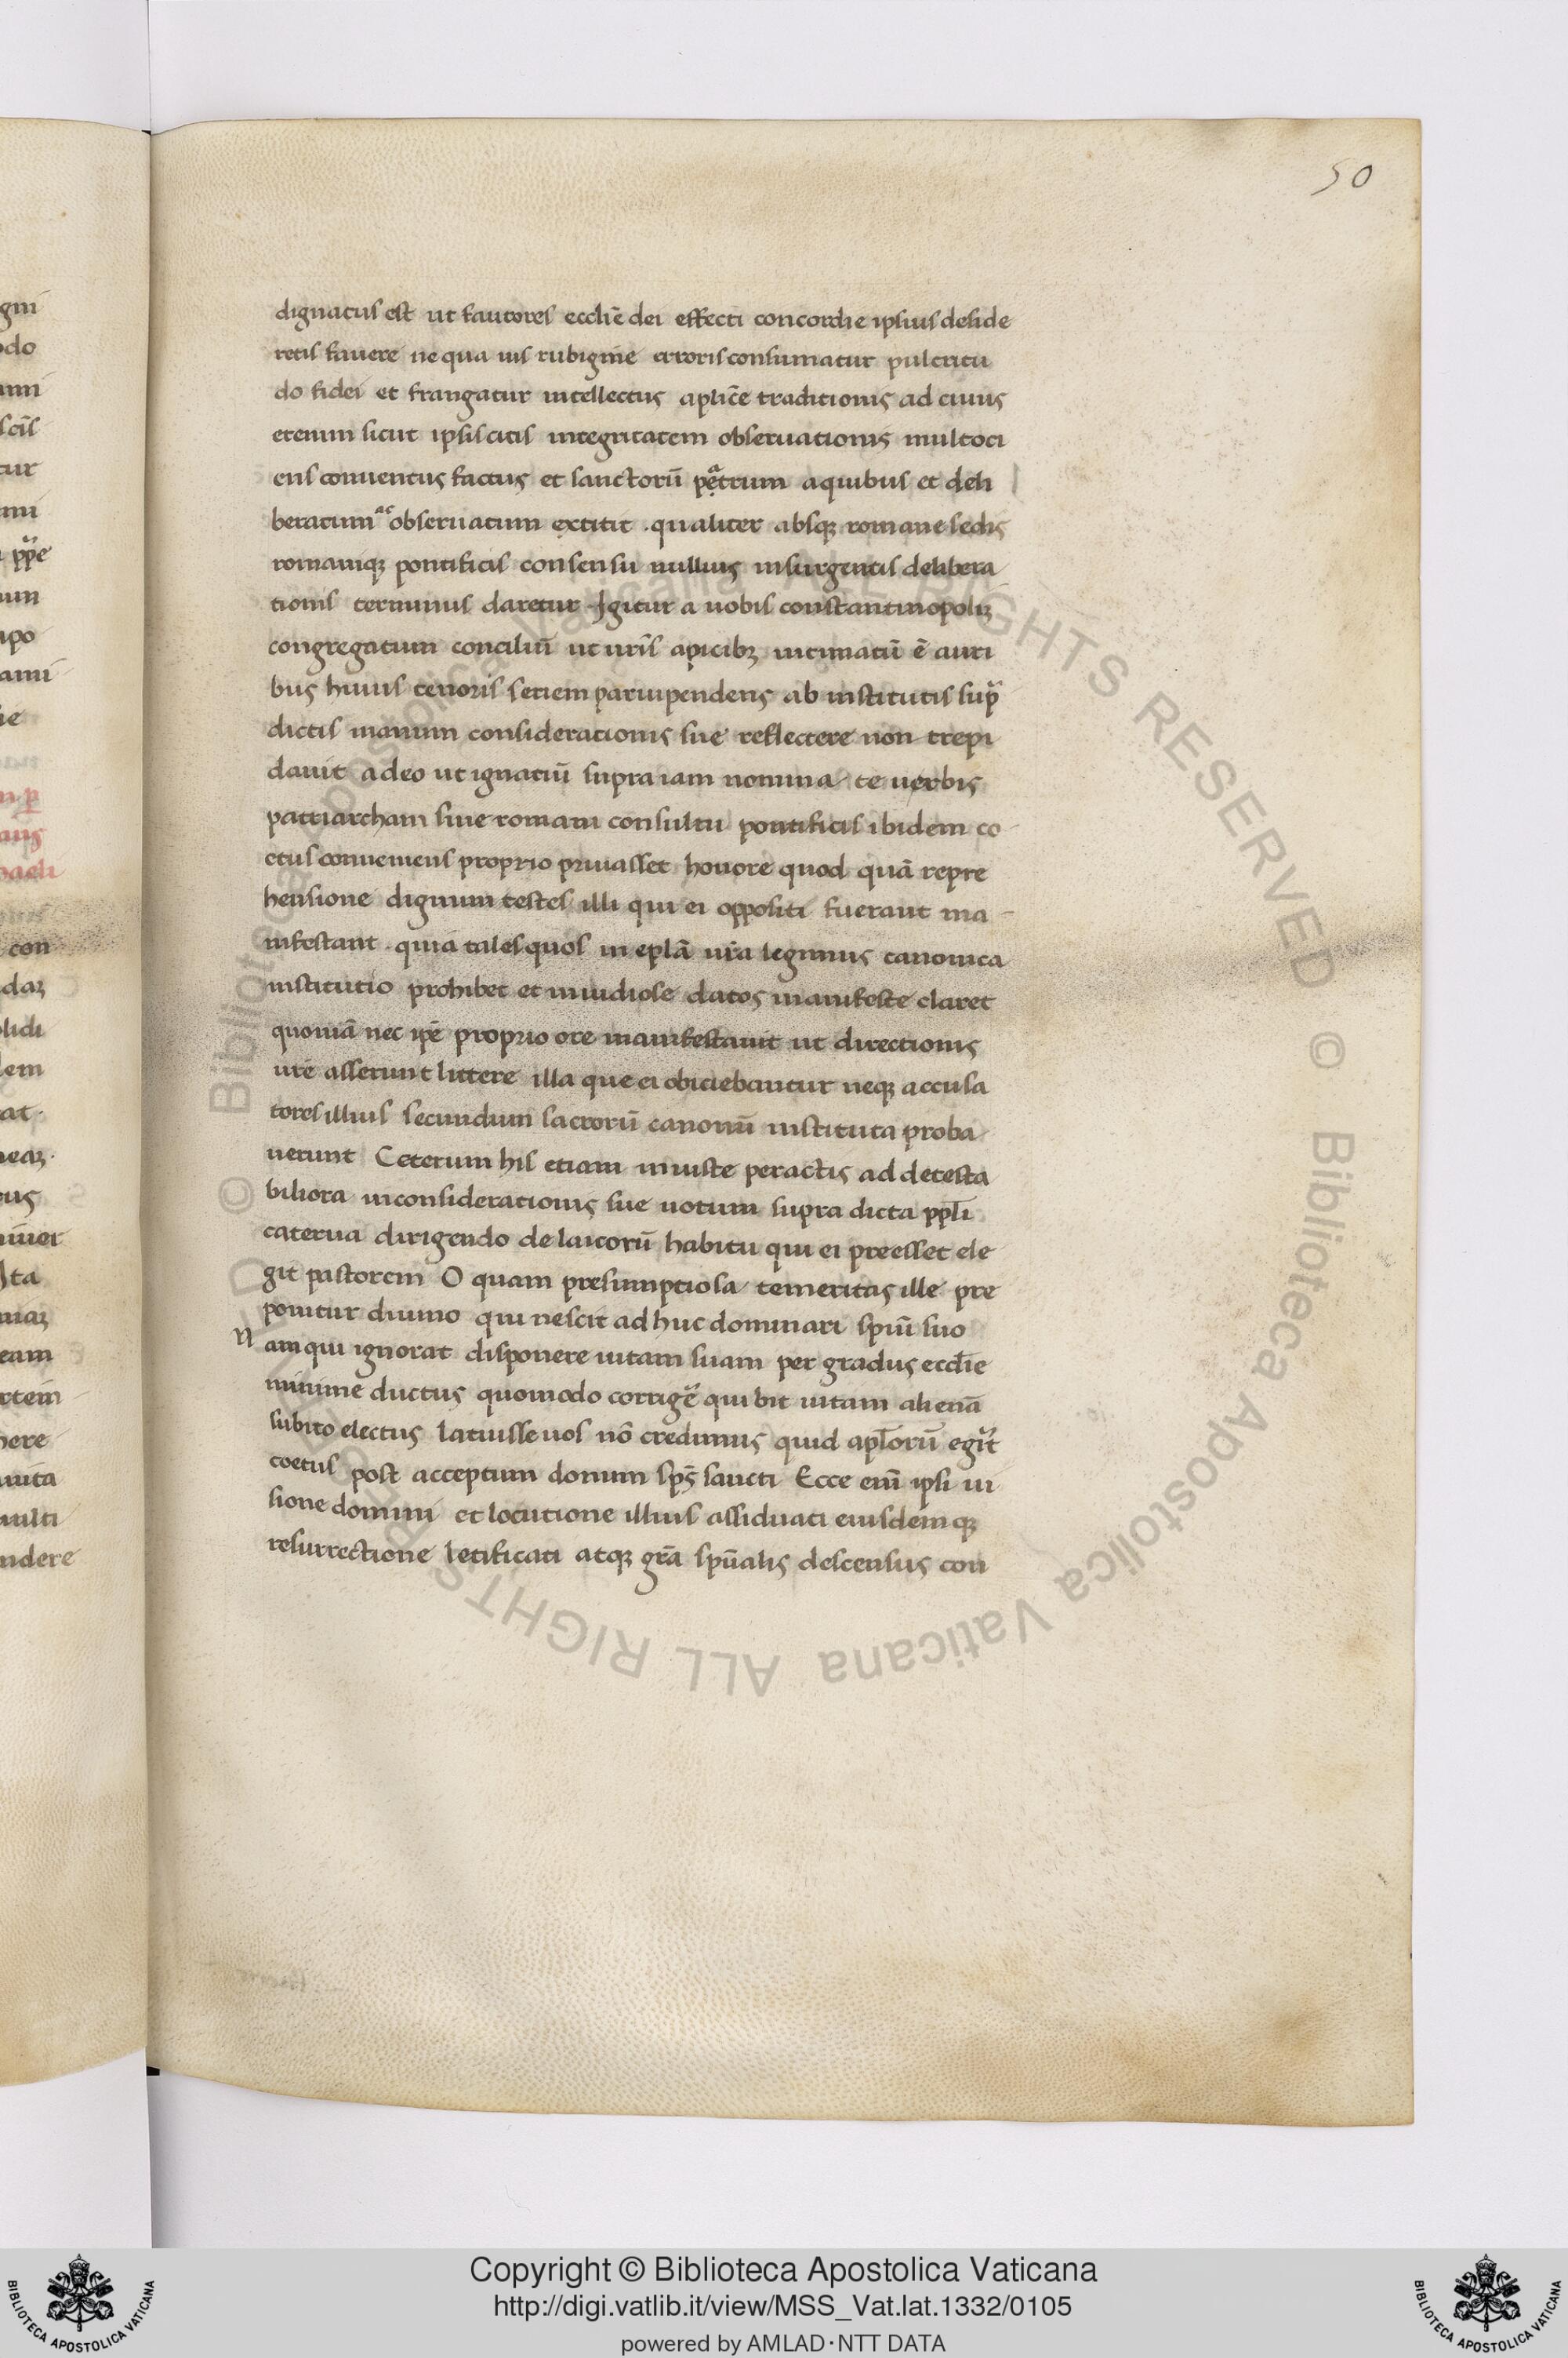 50
dignatus est ut fautores ecclīe dei effecti concordie ipsius deside
retis fauere ne qua uis rubigine erroris consumatur pulcritu
do fidei et frangatur intellectus aplīce traditionis ad cuius
etenim sicut ipsis citis integritatem obseruationis multoci
ens conuentus factus et sanctorū patrum a quibus et deli
beratum ac obseruatum extitit . qualiter absqꝫ romane sedis
romaniqꝫ pontificis consensu nullius insurgentis delibera
tionis terminus daretur . Igitur a uobis constantinopolis
congregatum conciliū ut uīris apicibꝫ intimatū ē auri
bus huius tenoris seriem paruipendens ab institutis sup̄
dictis manum considerationis sue reflectere non trepi
dauit adeo ut ignatiū supra iam nomina te uerbis
patriarcham sine romani consultu pontificis ibidem co
etus conueniens proprio priuasset honore quod quā repre
hensione dignum testes illi qui ei oppositi fuerant ma
nifestant . quia tales quos in eplā uīra legimus canonica
institutio prohibet et inuidiose datos manifeste claret
quoniā nec ipē proprio ore manifestauit ut directionis
uīre asserunt littere illa que ei obiciebantur neqꝫ accusa
tores illius secundum sacrorū canonū instituta proba
uerunt Ceterum his etiam iniuste peractis ad detesta
biliora inconsiderationis sue uotum supra dicta pplī
caterua dirigendo de laicorū habitu qui ei preesset ele
git pastorem O quam presumptiosa temeritas ille pre
ponitur diuino qui nescit ad huc dominari spiū suo
N am qui ignorat disponere uitam suam per gradus ecclīe
minime ductus quomodo corrigē quibit uitam alienā
subito electus latuisse uos nō credimus quid aplorū egīt
coetus post acceptum donum sps̄ sancti Ecce enī ipsi ui
sione domini et locutione illius assiduati eiusdemqꝫ
resurrectione letificati atqꝫ grā spūalis descensus con
Copyright © Biblioteca Apostolica Vaticana
http://digi.vatlib.it/view/MSS_Vat.lat.1332/0105
powered by AMLAD·NTT DATA
BIBLIOTECA APOSTOLICA VATICANA
BIBLIOTECA APOSTOLICA VATICANA
© Biblioteca Apostolica Vaticana ALL RIGHTS RESERVED © Biblioteca Apostolica Vaticana ALL RIGHTS RESERVED